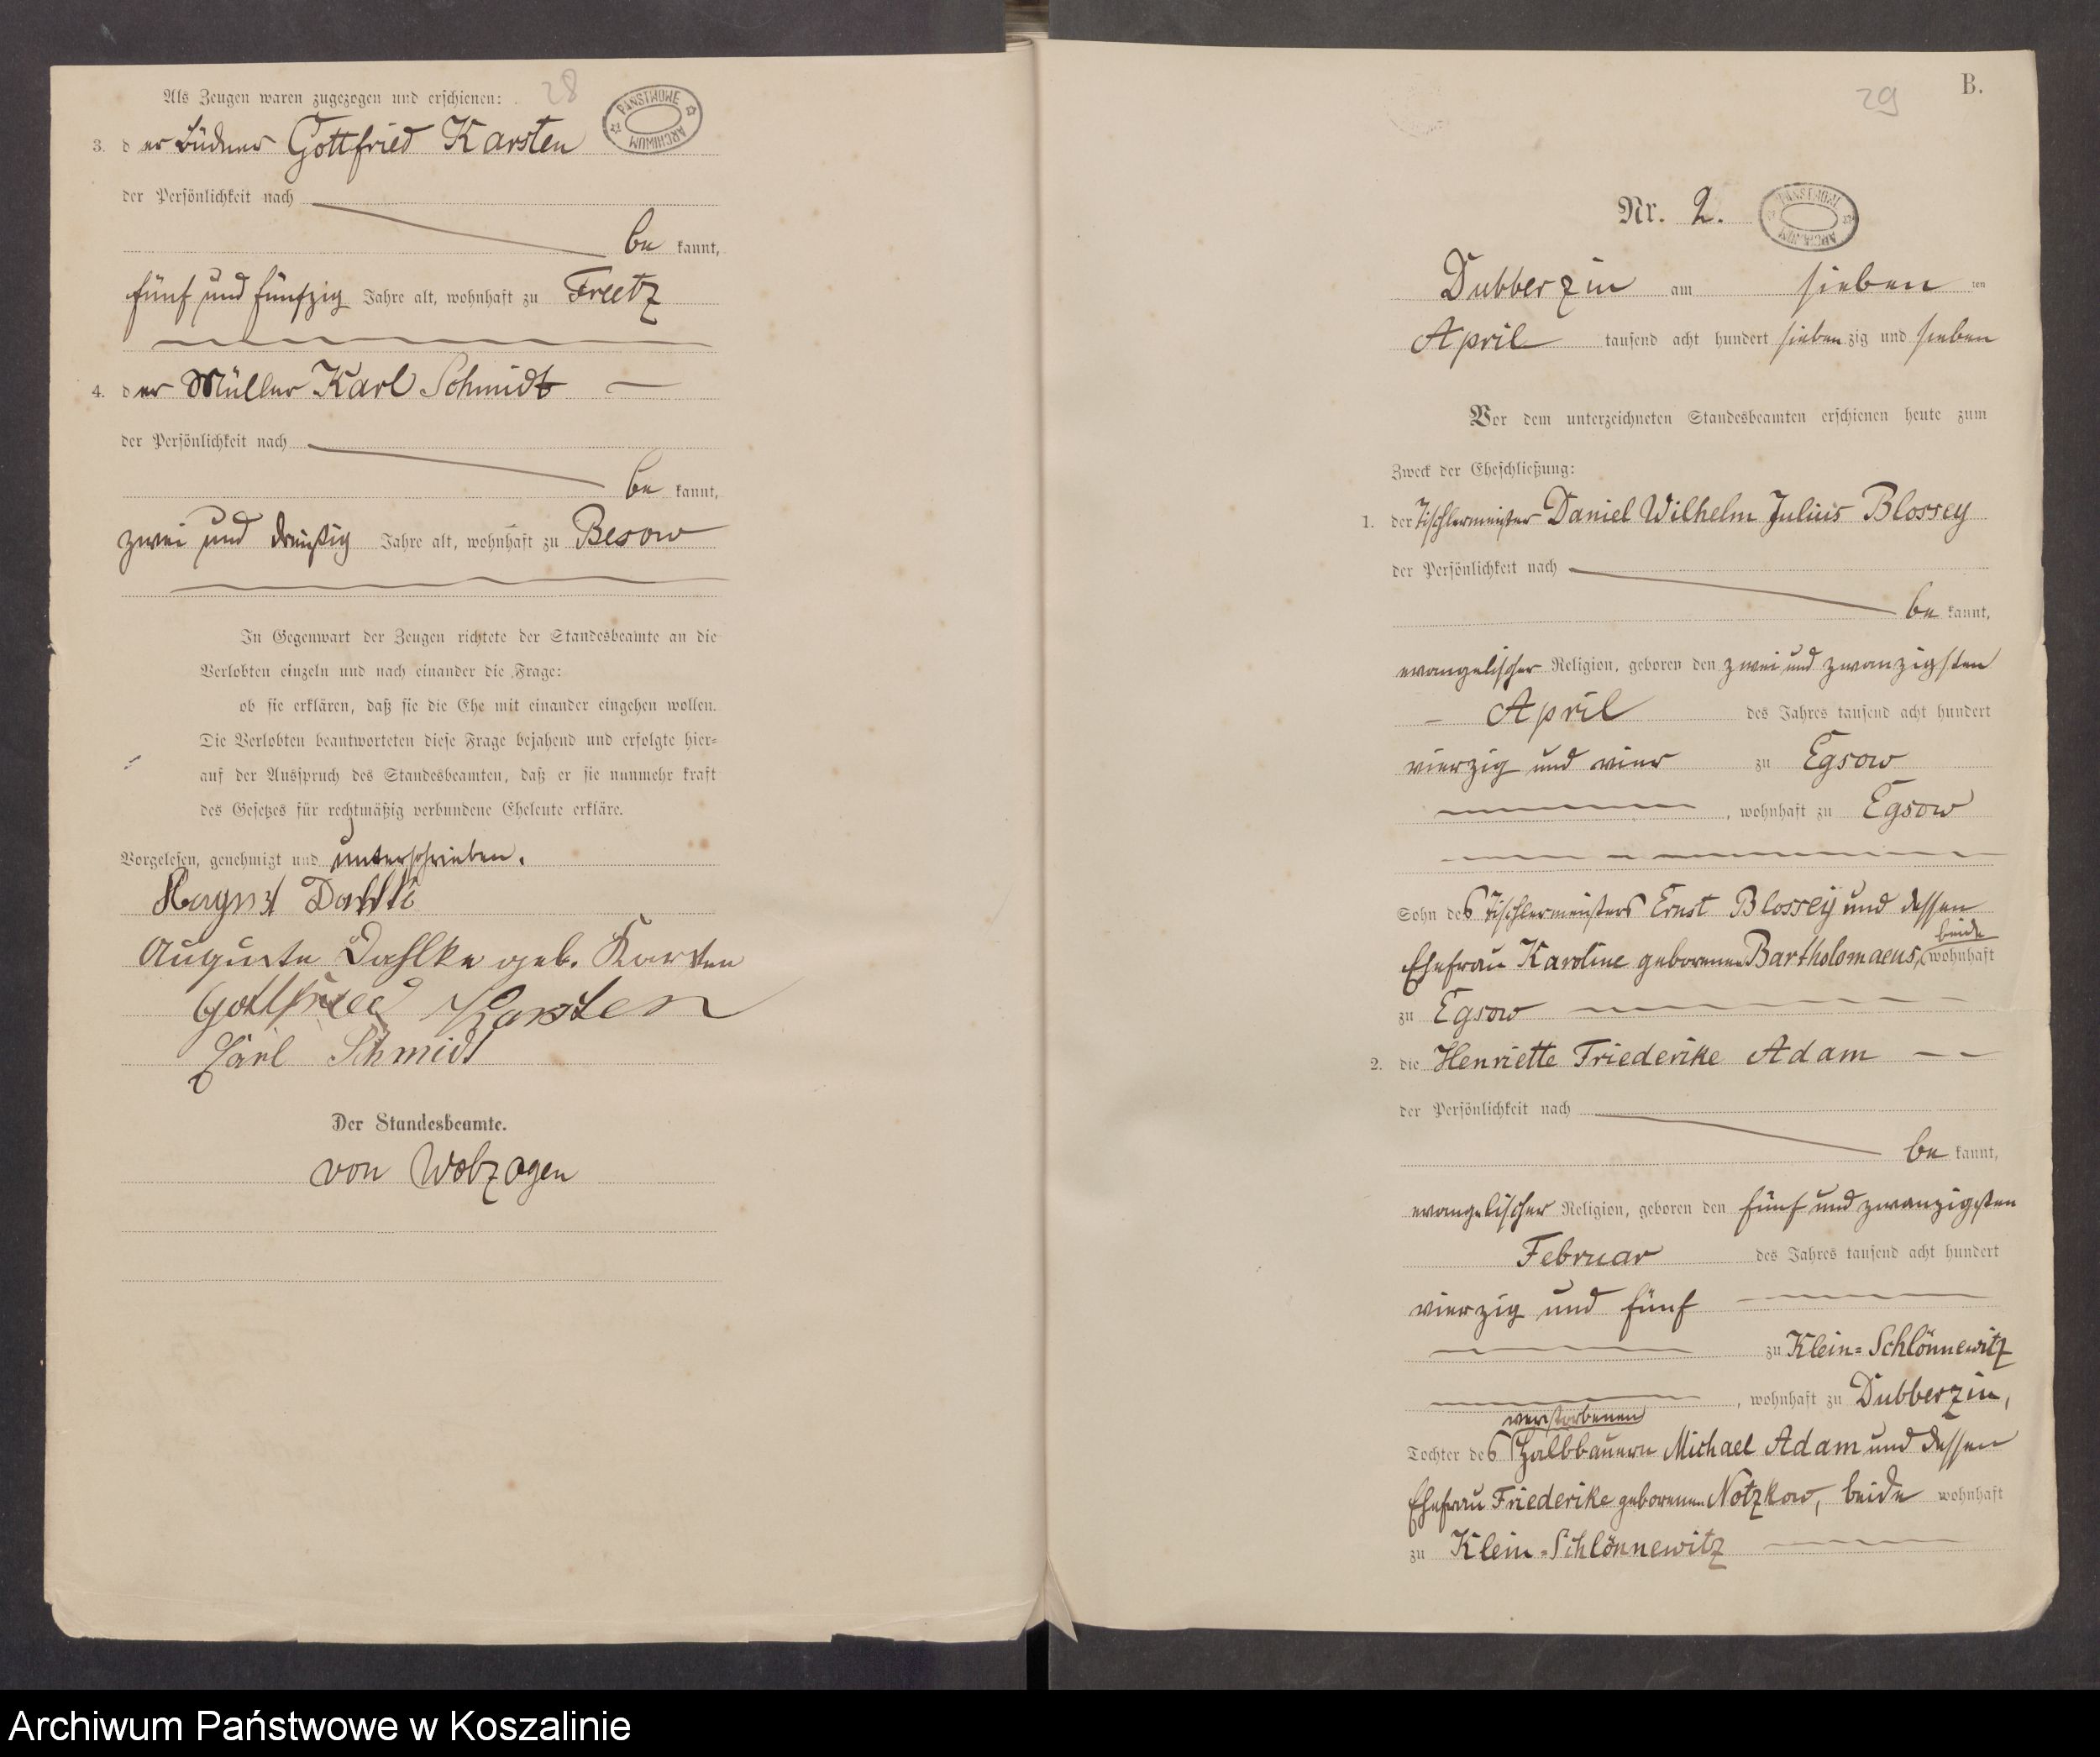 Als Zeugen waren zugezogen und erschienen:
28
PAŃSTWOWE ARCHIWUM
3. der Büdner Gottfried Karsten
der Persönlichkeit nach
be kannt,
fünf und fünfzig Jahre alt, wohnhaft zu Freetz
4. der Müller Karl Schmidt
der Persönlichkeit nach
be kannt,
zwei und dreißig Jahre alt, wohnhaft zu Besow
In Gegenwart der Zeugen richtete der Standesbeamte an die
Verlobten einzeln und nach einander die Frage:
ob sie erklären, daß sie die Ehe mit einander eingehen wollen.
Die Verlobten beantworteten diese Frage bejahend und erfolgte hier-
auf der Ausspruch des Standesbeamten, daß er sie nunmehr kraft
des Gesetzes für rechtmäßig verbundene Eheleute erkläre.
Vorgelesen, genehmigt und unterschrieben.
Auguste Dahlke geb. Karsten
Gottfried Karsten
Carl Schmidt
Der Standesbeamte.
von Wolzogen
B.
29
Nr. 2.
PAŃSTWOWE ARCHIWUM
Dubberzin am sieben ten
April tausend acht hundert siebenzig und sieben
Vor dem unterzeichneten Standesbeamten erschienen heute zum
Zweck der Eheschließung:
1. der Tischlermeister Daniel Wilhelm Julius Blossey
der Persönlichkeit nach
be kannt,
evangelischer Religion, geboren den zwei und zwanzigsten
April des Jahres tausend acht hundert
vierzig und vier zu Egsow
, wohnhaft zu Egsow
Sohn des Tischlermeisters Ernst Blossey und dessen
beide
Ehefrau Karoline geborenen Bartholomaeus, wohnhaft
zu Egsow
2. die Henriette Friederike Adam
der Persönlichkeit nach
be kannt,
evangelischer Religion, geboren den fünf und zwanzigsten
Februar des Jahres tausend acht hundert
vierzig und fünf
zu Klein-Schlönnewitz
, wohnhaft zu Dubberzin,
verstorbenen
Tochter des Halbbauern Michael Adam und dessen
Ehefrau Friederike geborenen Notzkow, beide wohnhaft
zu Klein-Schlönnewitz
Archiwum Państwowe w Koszalinie